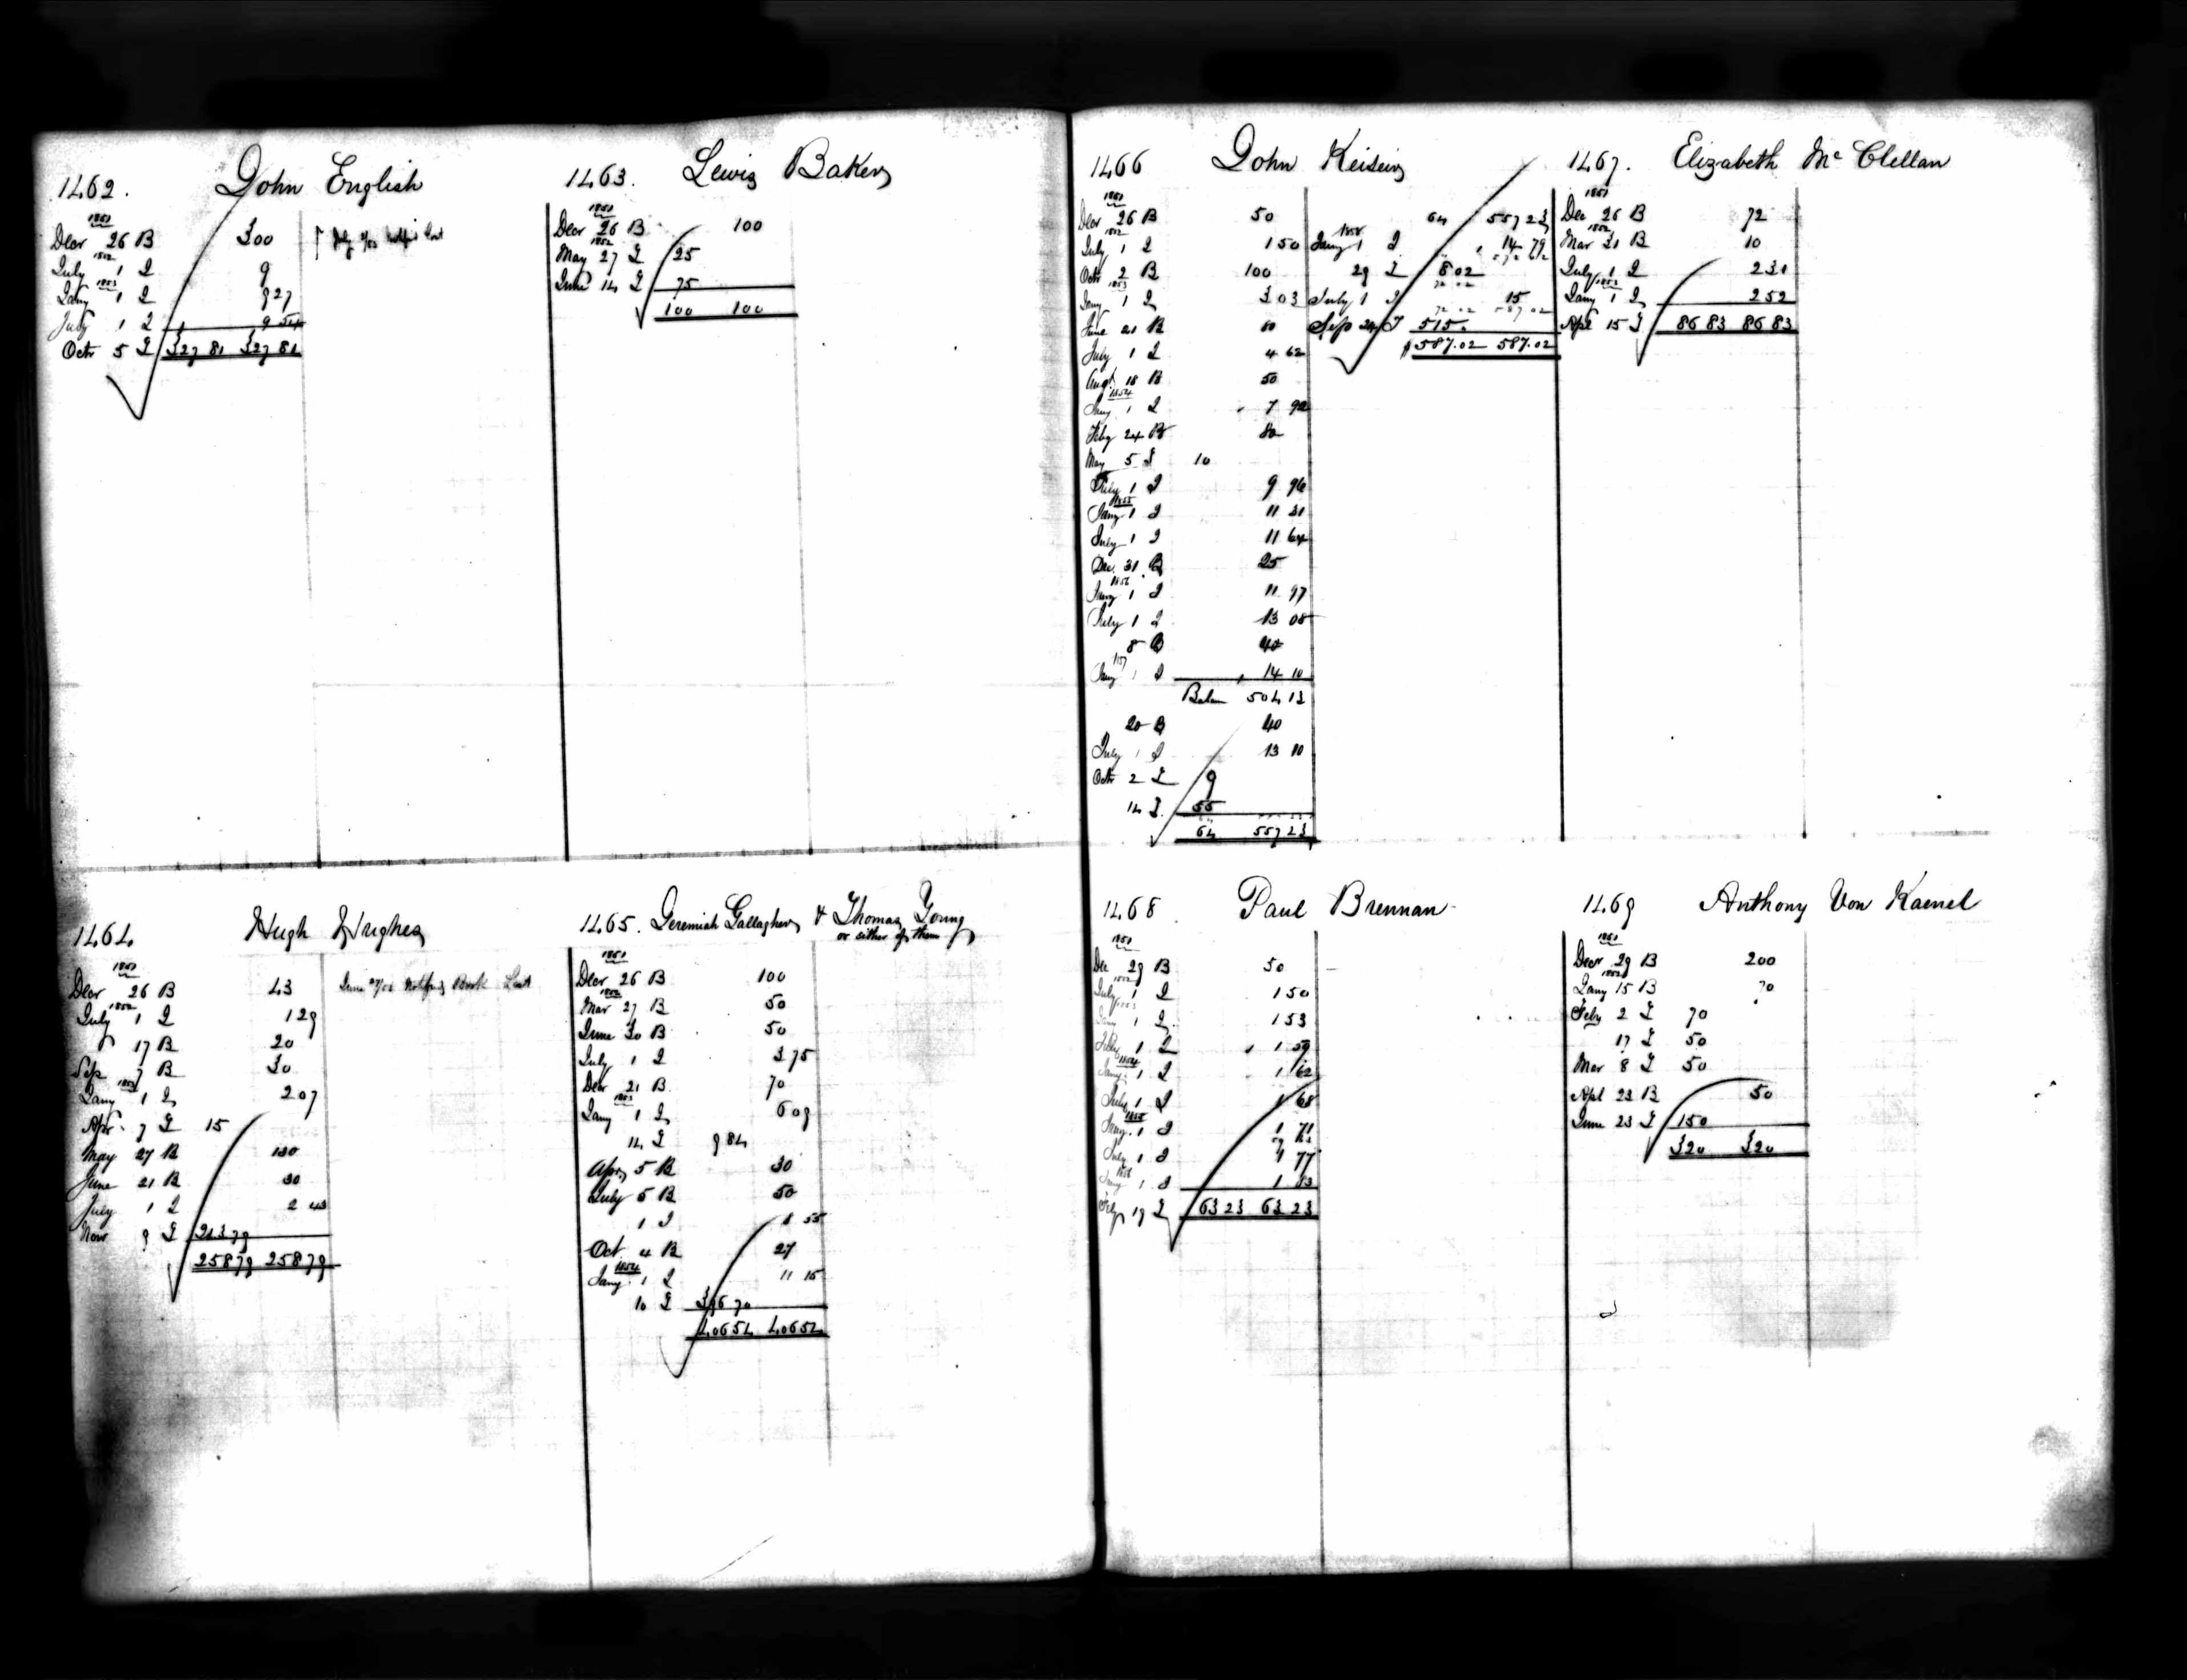 1462. John English
1851
Decr 26 B 300
1852
July 1 I 9
1853
Jany 1 I 9 27
July 1 I 9 54
Octr 5 I 327 81 327 81
1463. Lewis Baker
1851
Decr 26 B 100
1852
May 27 I 25
June 14 I 75
100 100
1464. Hugh Hughes
1851
Decr 26 B 43
June Notifys Book Lost
1852
July 1 I 1 29
17 B 20
Sep 7 B 30
1853
Jany 1 I 2 07
Apr 7 I 15
May 27 B 130
June 21 B 30
July 1 I 2 43
Novr 9 I 243 79
258 79 258 79
1465. Jeremiah Gallagher & Thomas Young
or either of them
1851
Decr 26 B 100
1852
Mar 27 B 50
June 30 B 50
July 1 I 3 75
Decr 21 B 70
1853
Jany 1 I 6 09
14 I 9 84
Apr 5 B 30
July 5 B 50
1 I 8 55
Oct 4 B 27
1854
Jany 1 I 11 15
10 I 396 70
406 54 406 54
1466 John Keiser
1851
Decr 26 B 50
1852
July 1 I 1 50
Octr 2 B 100
1853
Jany 1 I 3 03
June 21 B 60
July 1 I 4 62
Augt 18 B 50
1854
Jany 1 I 7 92
Feby 24 B 80
May 5 I 10
July 1 I 9 96
1855
Jany 1 I 11 31
July 1 I 11 64
Dec. 31 B 25
1856
Jany 1 I 11 97
July 1 I 13 08
8 B 40
1857
Jany 1 I 14 10
Balan 504 13
20 B 40
July 1 I 13 10
Octr 2 I 9
14 I 55
64 557 23
64 557 23
1858
Jany 1 I 14 79
29 I 8 02
July 1 I 15
Sep 24 I 515.
$587.02 587.02
1467. Elizabeth Mc Clellan
1851
Dec 26 B 72
1852
Mar 31 B 10
July 1 I 2 31
1853
Jany 1 I 2 52
Apl 15 I 86 83 86 83
1468 Paul Brennan
1851
Dec 29 B 50
1852
July 1 I 1 50
1853
Jany 1 I 1 53
July 1 I 1 59
1854
Jany 1 I 1 62
July 1 I 1 68
1855
Jany 1 I 1 71
July 1 I 1 77
1856
Jany 1 I 1 83
Feby 19 I 63 23 63 23
1469 Anthony Von Kaenel
1851
Decr 29 B 200
1852
Jany 15 B 70
Feby 2 I 70
17 I 50
Mar 8 I 50
Apl 23 B 50
June 23 I 150
320 320